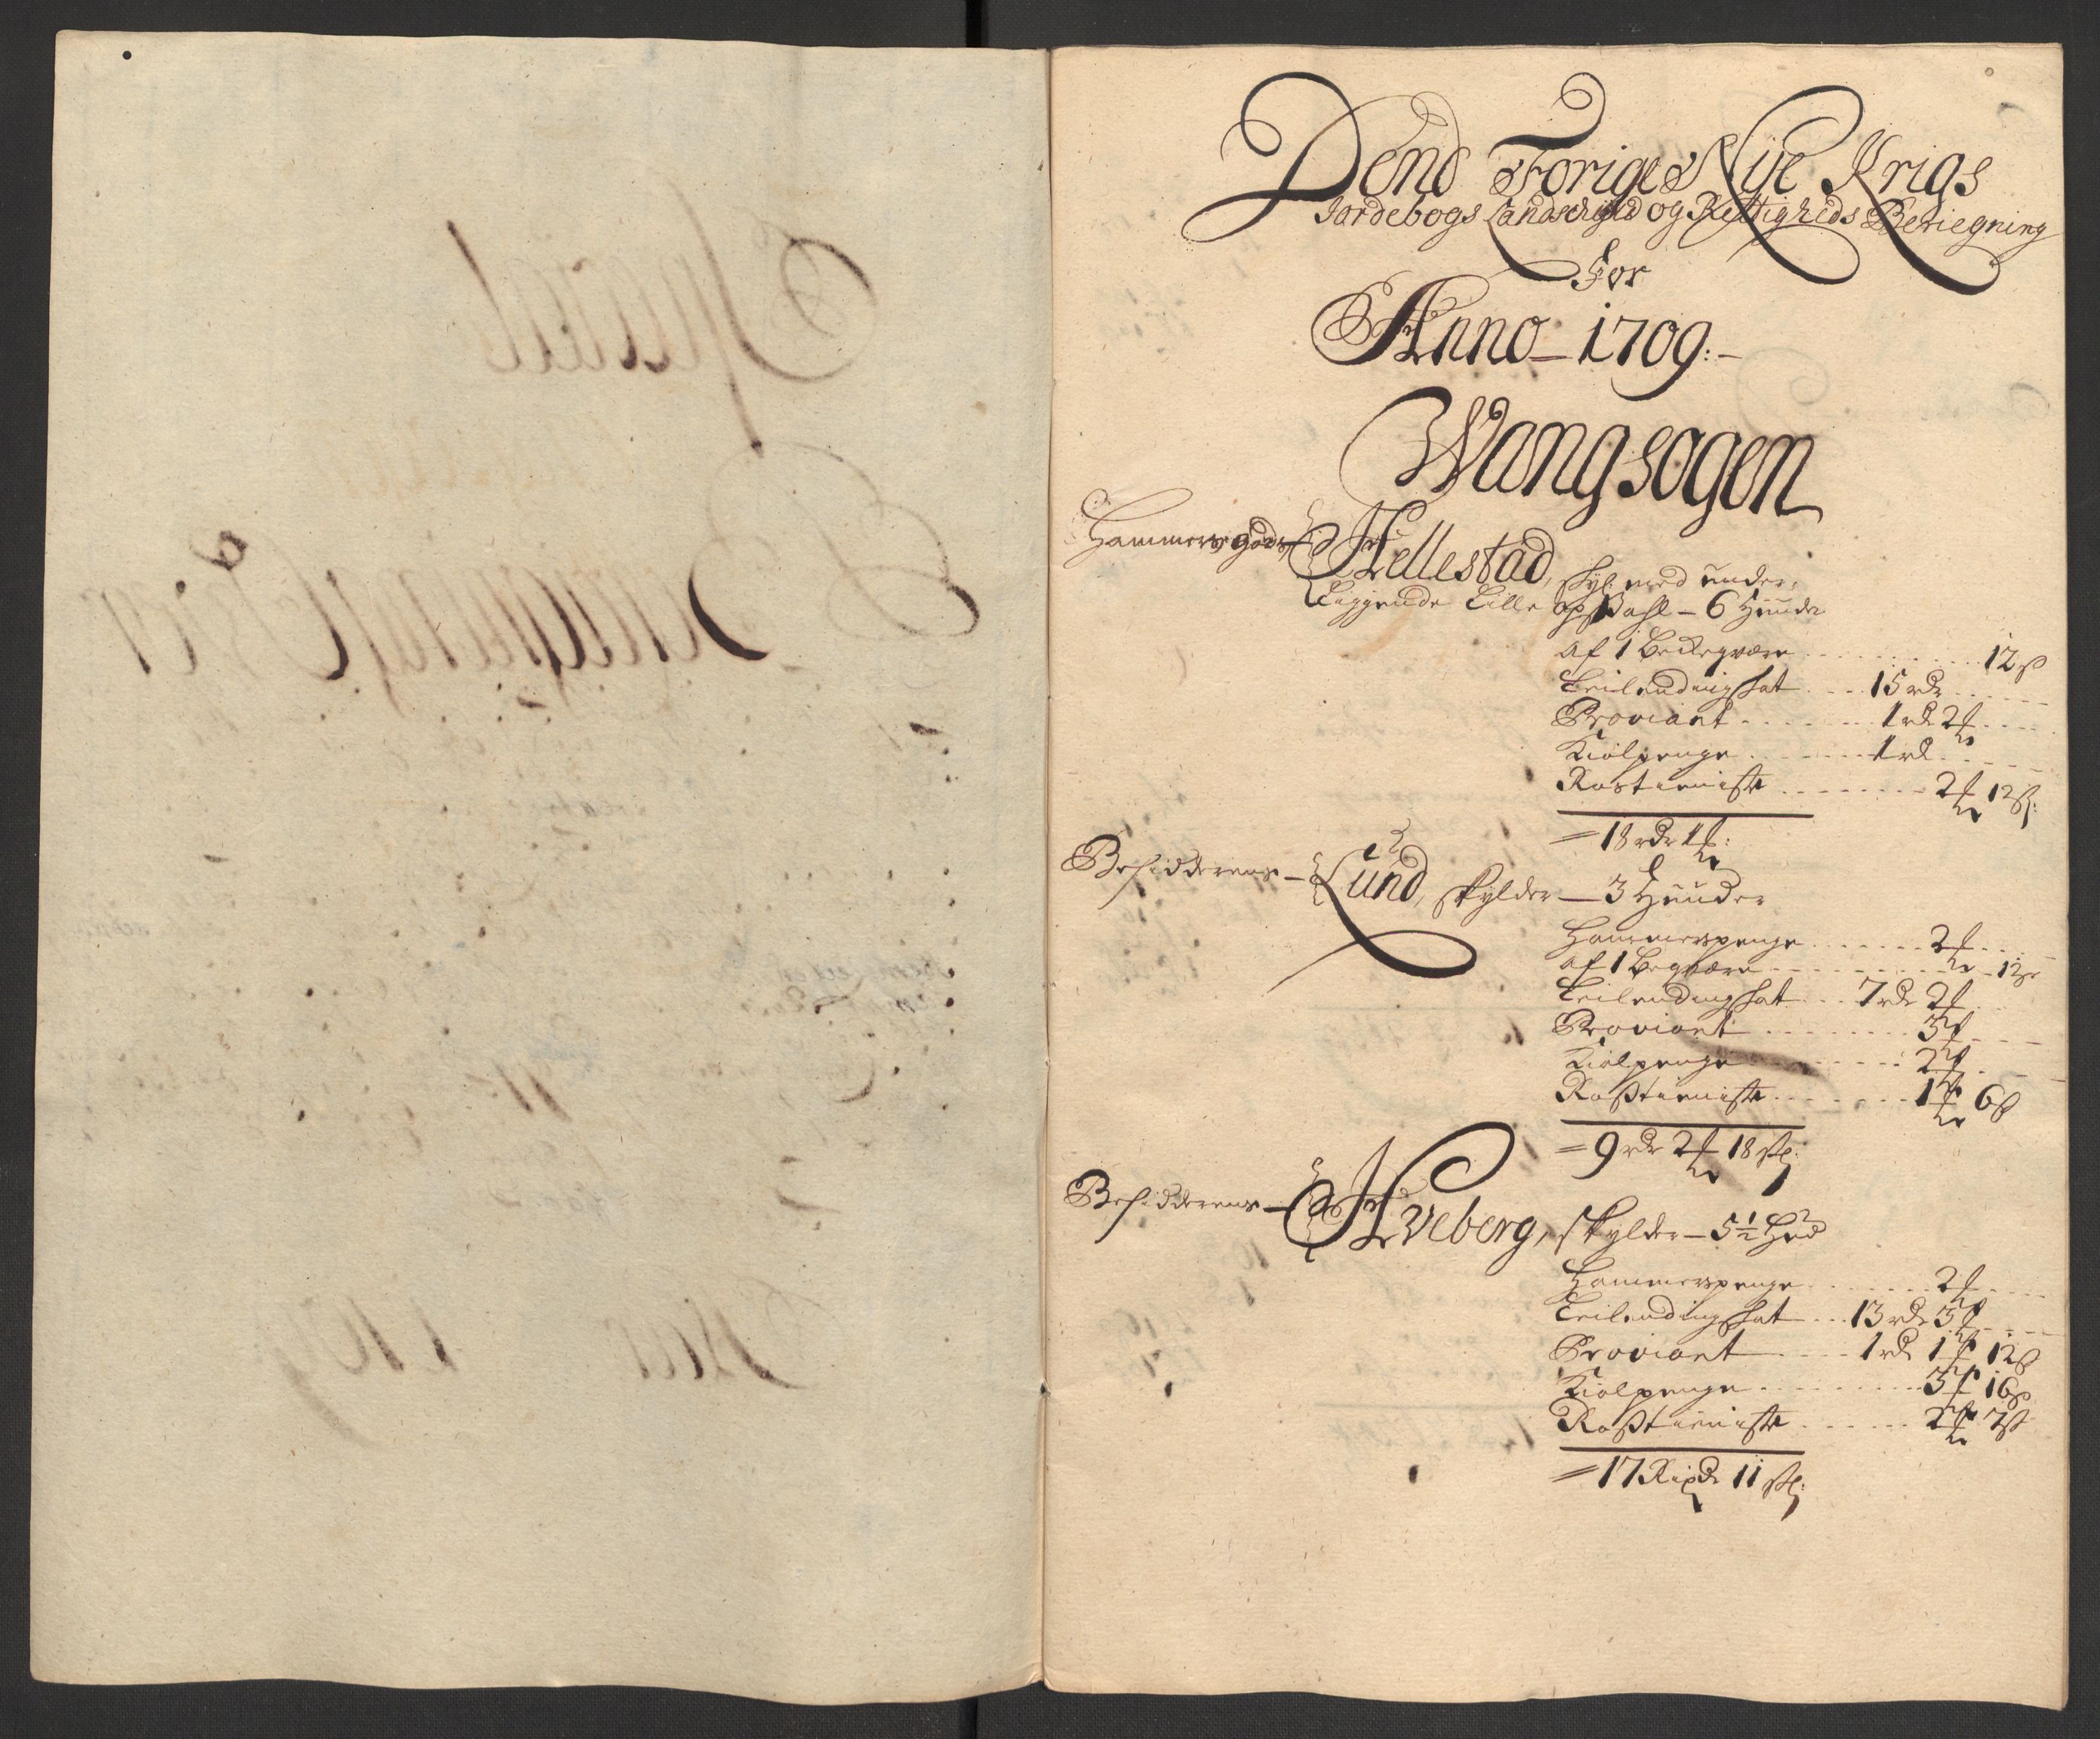 Dend Forige Nÿe Krigs
Jordebogs Landschÿld og Rettigheds Beriegning
For
Anno 1709:
Wangsogen
Hammers godz Hellestad, skÿl: med under:
liggende Lille opdahl – 6 Huude
af 1 Beckeqvern 12 ß
Leilendingskat 15 rdr
Proviant 1 rd 2 ort
Kiølpenge 1 rd
Rostieniste 2 ort 12 ß:
= 18 rdr 1 ort:
Besidderens – Lund, skÿlder – 3 Huuder
Hammerspenge 2 ort
af 1 Beqvern 12 ß
Leilendingskat 7 rdr 2 ort
Proviant 3 ort
Kiølpenge 2 ort
Roßtieniste 1 ort 6 ß
= 9 rdr 2 ort 18 sk:
Besidderens – Hveberg, skÿlder – 5 1/2 Hud
Hammerspenge 2 ort
Leilendingskat 13 rdr 3 ort
Proviant 1 rd 1 ort 12 ß
Kiølpenge 3 ort 16 ß
Roßtieniste 2 ort 7 ß
= 17 Rixdr 11 sk: